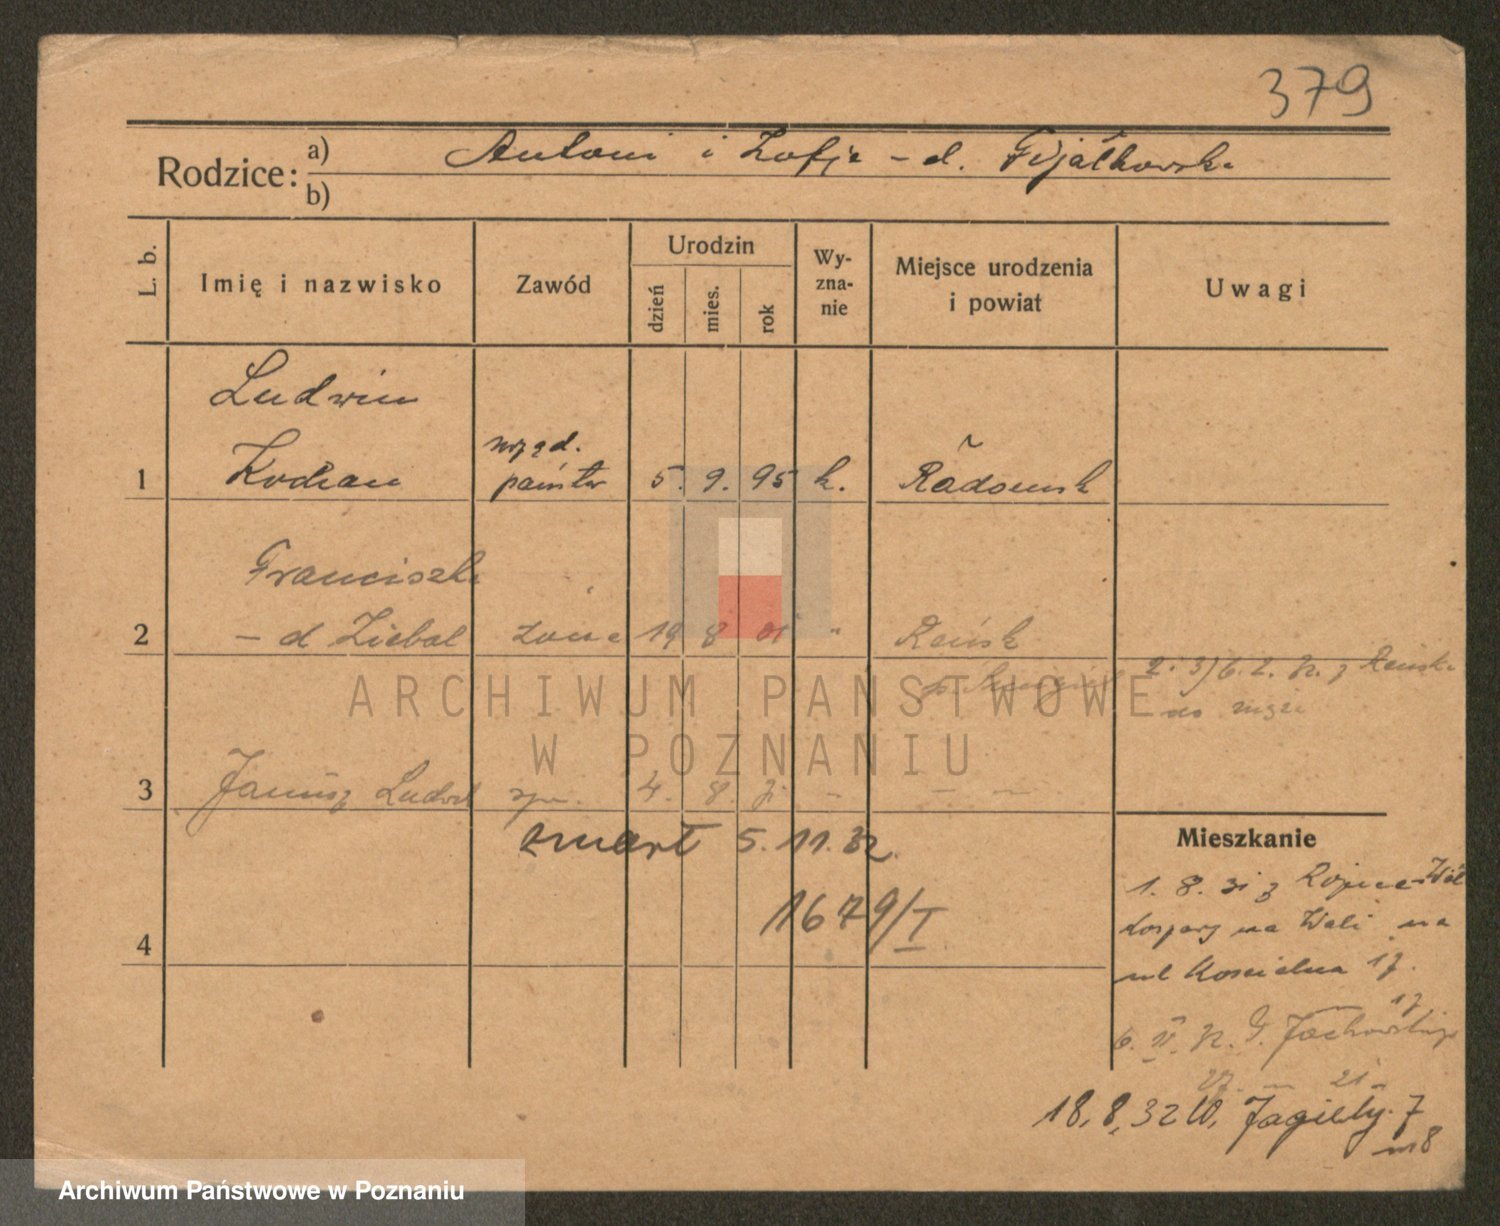 379
Rodzice: a) Antoni i Zofja - d. Fijałkowska
b)
L. b.
Imię i nazwisko
Zawód
Urodzin
dzień
mies.
rok
Wy-
zna-
nie
Miejsce urodzenia
i powiat
Uwagi
Ludwin
1 Kochan urzęd. państw 5. 9. 95 k. Radomsk
Franciszka
2 - d Ziebal żona 19 8 01 " Reńsk
2. 3) 6. 2. 32. z Reńska
do męża
3 Janusz Ludw syn. 4. 8 31 - - -
zmarł 5. 11. 32.
1679/I
4
Mieszkanie
1. 8. 31 z
na
ul Kościelna 17.
17
6. V. 32. G.
27. - 21 -
18. 8. 32 W. Jagiełły. 7
m 8
ARCHIWUM PAŃSTWOWE
W POZNANIU
Archiwum Państwowe w Poznaniu